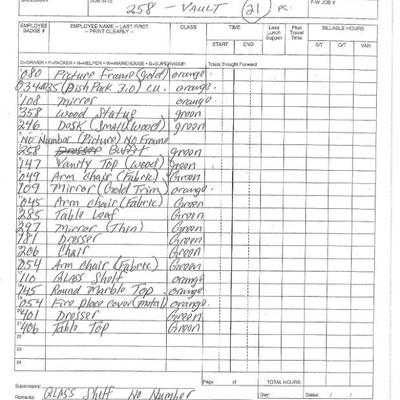 258 - VAULT (21) pc.
F-W JOB #
EMPLOYEE BADGE # EMPLOYEE NAME – LAST FIRST – PRINT CLEARLY – CLASS TIME START END Less Lunch Supper Plus Travel Time BILLABLE HOURS S/T O/T VAN
D=DRIVER • P=PACKER • H=HELPER • W=WAREHOUSE • S=SUPERVISOR Totals Brought Forward
080 Picture Frame (gold) orange.
034035 (DishPack 3.0) cu. orange
108 Mirror orange
358 Wood Statue green
246 Desk (Small) (wood) green
No Number (Picture) No Frame
258 Dresser Buffet green
147 Vanity Top (wood) green
049 Arm chair (Fabric) Green
109 Mirror (Gold Trim) orange.
045 Arm chair (Fabric) Green
285 Table Leaf Green
297 Mirror (Thin) Green
181 Dresser Green
206 Chair Green
054 Arm chair (Fabric) Green
110 GLASS Shelf orange
145 Round Marble Top orange
054 Fire place cover (metal) orange
401 Dresser Green
406 Table Top Green
22
23
24
Page of TOTAL HOURS:
Supervisors: Date: Days: /
Remarks: GLASS Shelf No Number